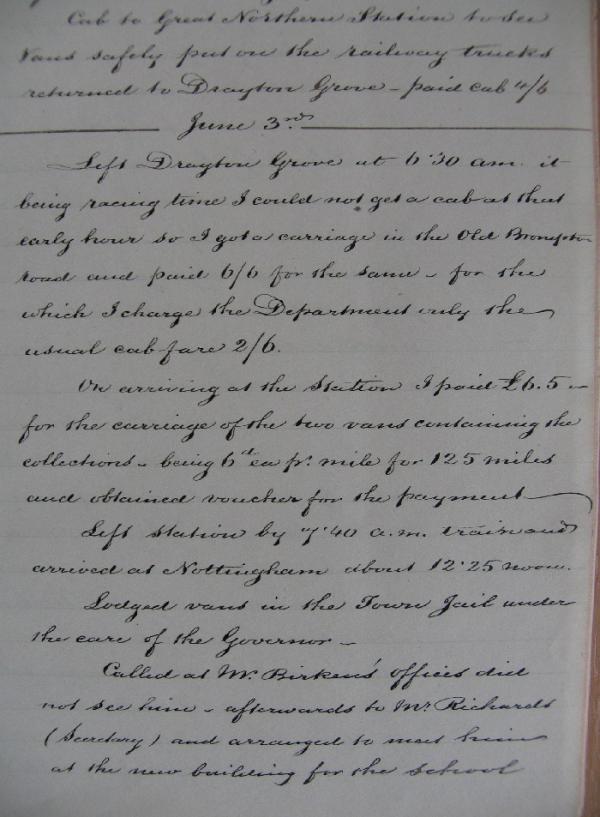 Cab to Great Northern Station to see
Vans safely put on the railway trucks
returned to Drayton Grove - paid cab 4/6
June 3rd
Left Drayton Grove at 6.30 am. it
being racing time I could not get a cab at that
early hour so I got a carriage in the Old Brompton
road and paid 6/6 for the same - for the
which I charge the Department only the
usual cab fare 2/6.
On arriving at the Station I paid £6.5 -
for the carriage of the two vans containing the
collections - being 6d ea pr. mile for 125 miles
and obtained voucher for the payment
Left station by 7.40 a.m. train and
arrived at Nottingham about 12.25 noon.
Lodged vans in the Town Jail under
the care of the Governor -
Called at Mr. Birkens' offices did
not see him - afterwards to Mr Richards
(Secretary) and arranged to meet him
at the new building for the school